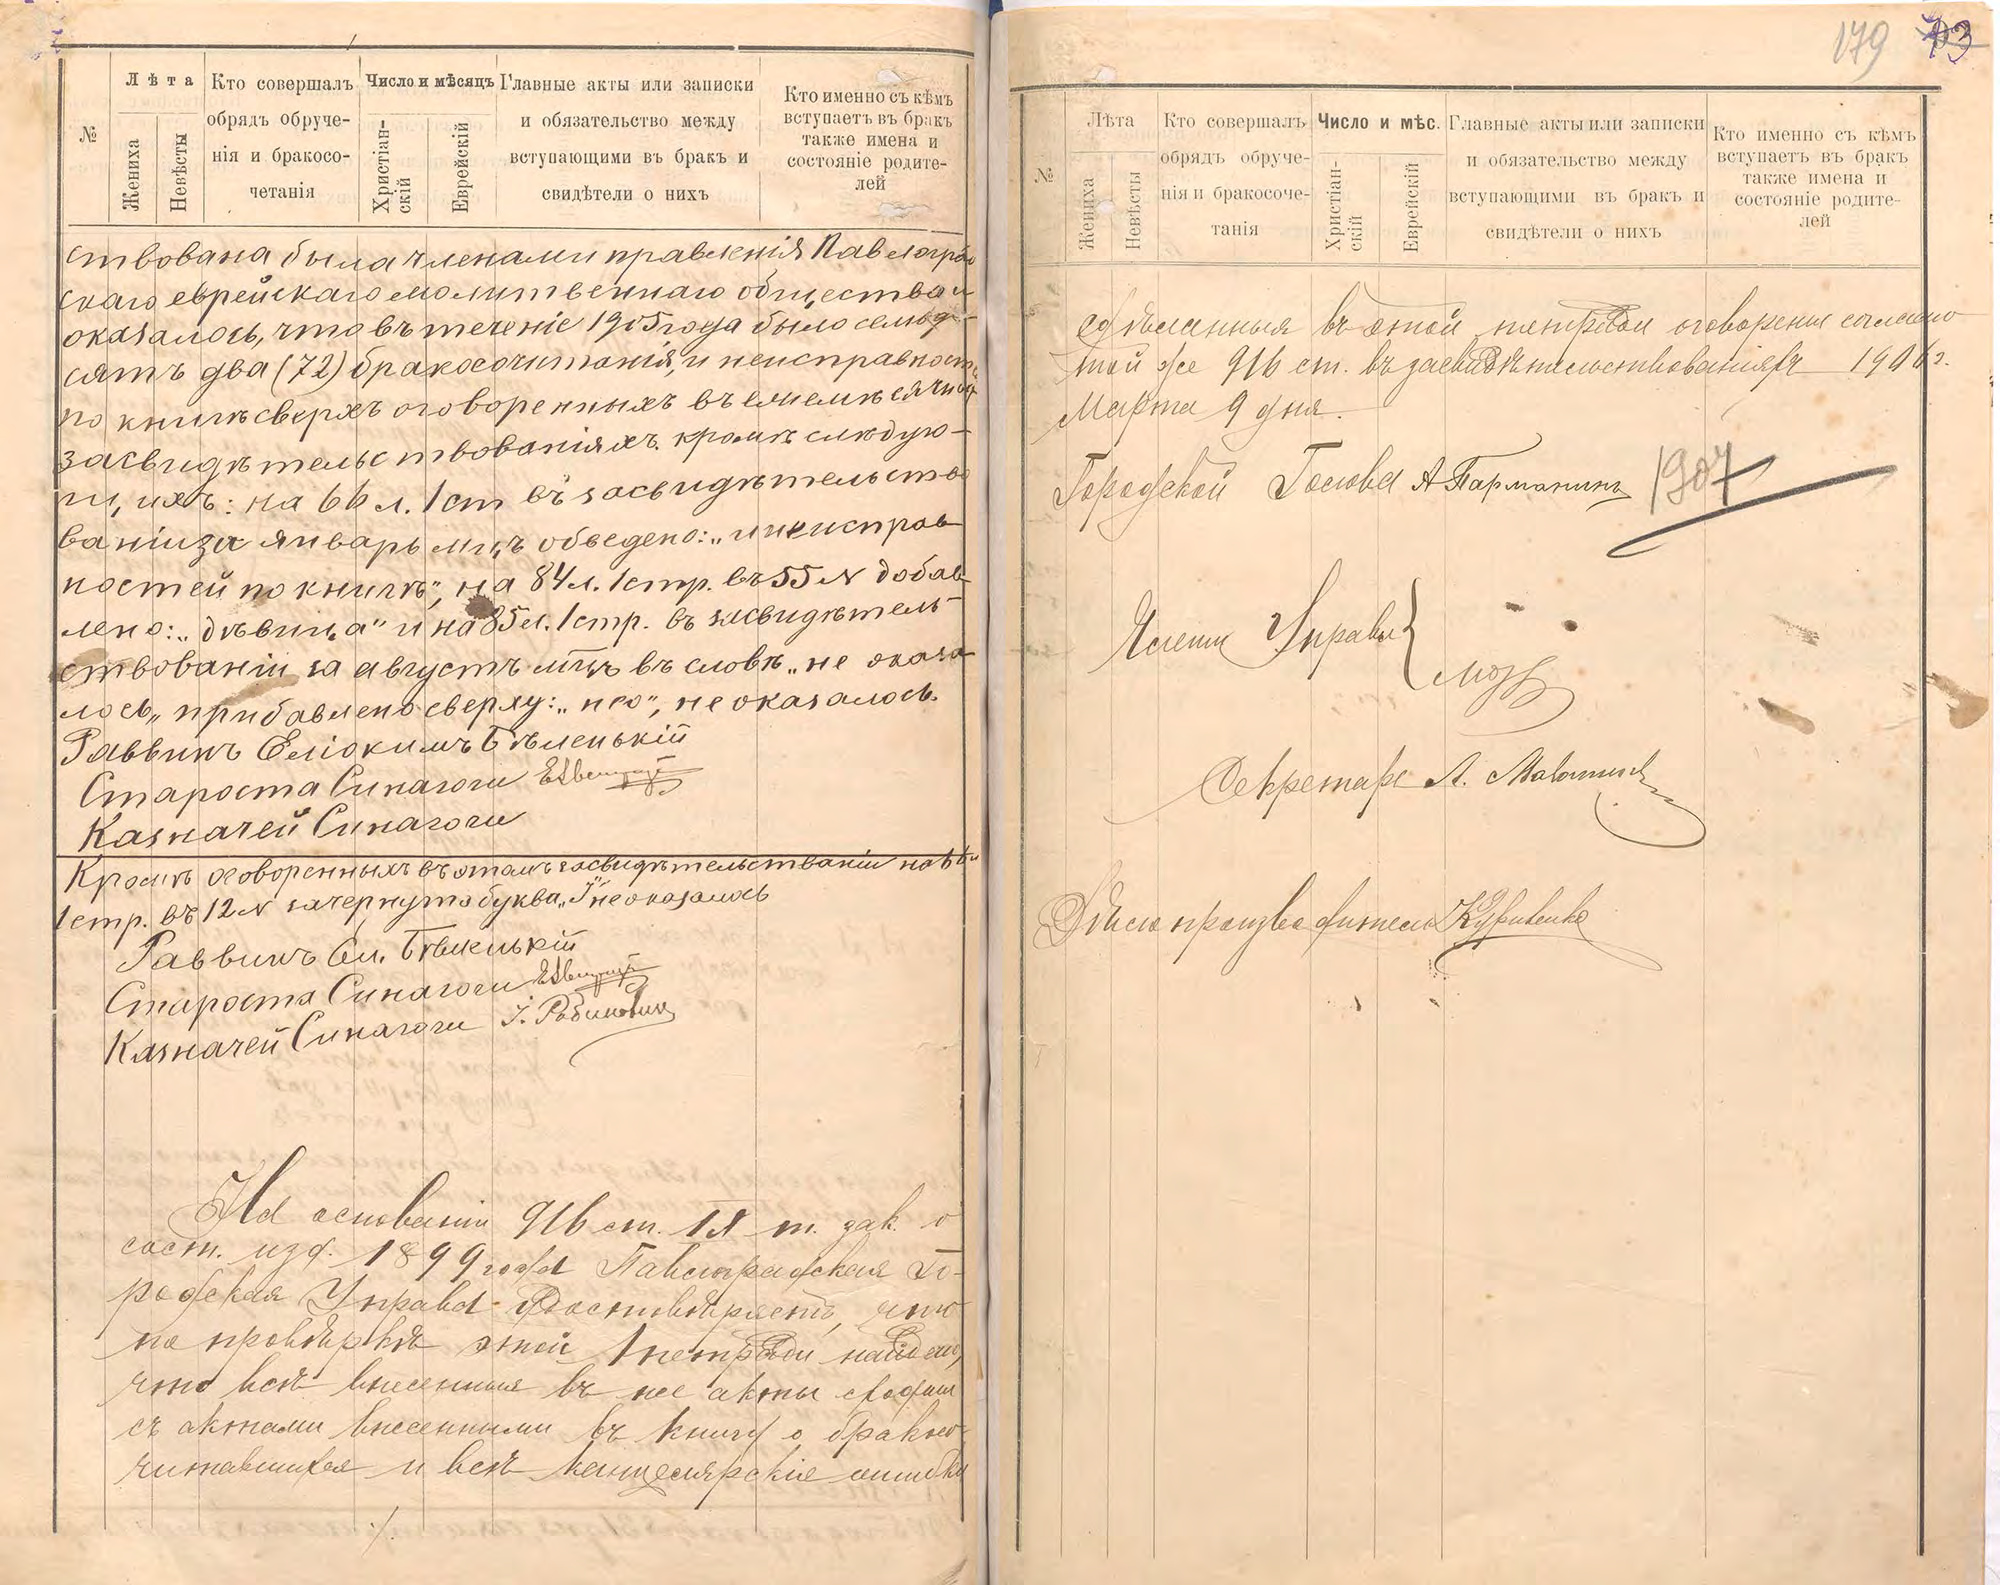 №
Лѣта
Жениха
Невѣсты
Кто совершалъ
обрядъ обруче-
нія и бракосо-
четанія
Число и мѣсяцъ
Христіан-
скій
Еврейскій
Главные акты или записки
и обязательство между
вступающими въ бракъ и
свидѣтели о нихъ
Кто именно съ кѣмъ
вступаетъ въ бракъ
также имена и
состояніе родите-
лей
ствована была членами правленія Павлоград
скаго еврейскаго молитвеннаго общества и
оказалось, что въ теченіе 1905 года было семьде-
сятъ два (72) бракосочитанія, и неисправност
по книгѣ сверхъ оговоренныхъ въ ежемѣсячных
засвидѣтельствованіяхъ кромѣ слѣдую-
щихъ: на 66 л. 1 ст въ засвидѣтельство
ваніи за январь мцъ обведено: „и неисправ
ностей по книгѣ", на 84 л. 1 стр. въ 55 № добав
лено: „дѣвица" и на 85 л. 1 стр. въ засвидѣтель-
ствованіи за августъ мцъ въ словѣ „не оказа
лось" прибавлено сверху: „но", не оказалось.
Раввинъ Еліокимъ Бѣленькій
Староста Синагоги
Казначей Синагоги
Кромѣ оговоренныхъ въ этомъ засвидѣтельствованіи на
1 стр. въ 12 № зачеркнуто буква „Г" не оказалось
Раввинъ Ел. Бѣленькій
Староста Синагоги
Казначей Синагоги І. Рабиновичъ
На основаніи 916 ст. IX т. зак. о
сост. изд. 1899 года Павлоградская Го-
родская Управа удостовѣряетъ, что
по провѣркѣ этой тетради найдено,
что всѣ внесенныя въ нее акты сходны
съ актами внесенными въ книгу о бракосо-
читавшихся и всѣ канцелярскія ошибки
179
№
Лѣта
Жениха
Невѣсты
Кто совершалъ
обрядъ обруче-
нія и бракосоче-
танія
Число и мѣс.
Христіан-
скій
Еврейскій
Главные акты или записки
и обязательство между
вступающими въ бракъ и
свидѣтели о нихъ
Кто именно съ кѣмъ
вступаетъ въ бракъ
также имена и
состояніе родите-
лей
сдѣланныя въ этой тетради оговорены согласно
той же 916 ст. въ засвидѣтельствованіяхъ 1906 г.
Марта 9 дня.
Городской Голова А Парманинъ
1907
Члены Управы
Секретарь А.
Дѣлопроизводитель